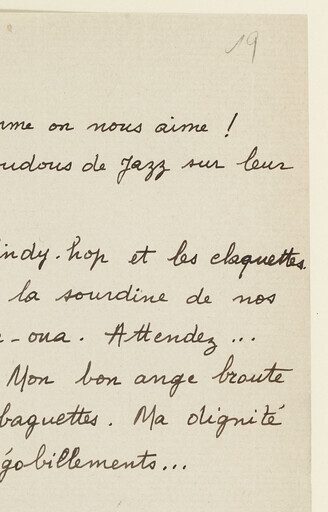 19
on nous aime !
de Jazz sur leur
hop et les claquettes.
la sourdine de nos
oua. Attendez ...
Mon bon ange broute
baguettes. Ma dignité
...